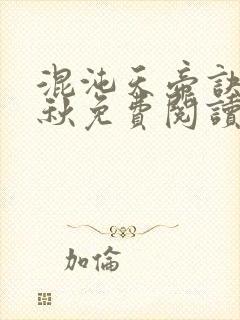 混沌天帝訣
秋免費閱讀
加倫